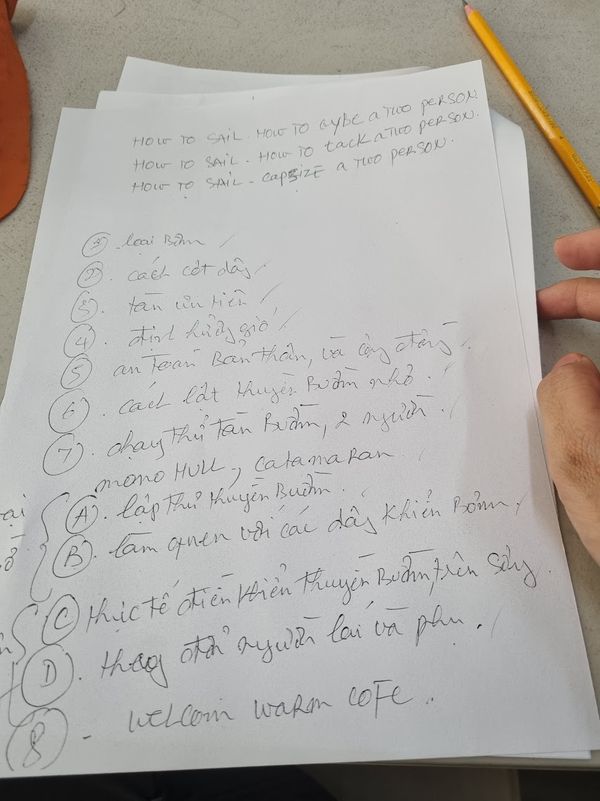 HOW TO SAIL. HOW TO GYBE A TWO PERSON.
HOW TO SAIL. HOW TO tack A TWO PERSON.
HOW TO SAIL - CAPSIZE A TWO PERSON.
loại Bờm
② cách cột dây
③ tàn ưu tiên
④ định hướng gió
⑤ an toàn Bản thân, và cộng đồng
⑥. cách lật thuyền Buồm nhỏ.
⑦. chạy thử tàn Buồm, 2 người.
mono HULL, catamaran
Ⓐ. lắp thử thuyền Buồm.
Ⓑ. làm quen với các dây khiển Bờm,
Ⓒ thực tế điền khiển thuyền Buồm, trên sông.
Ⓓ. thay đổi người lái và phụ.
⑧ - welcom warm COFE..